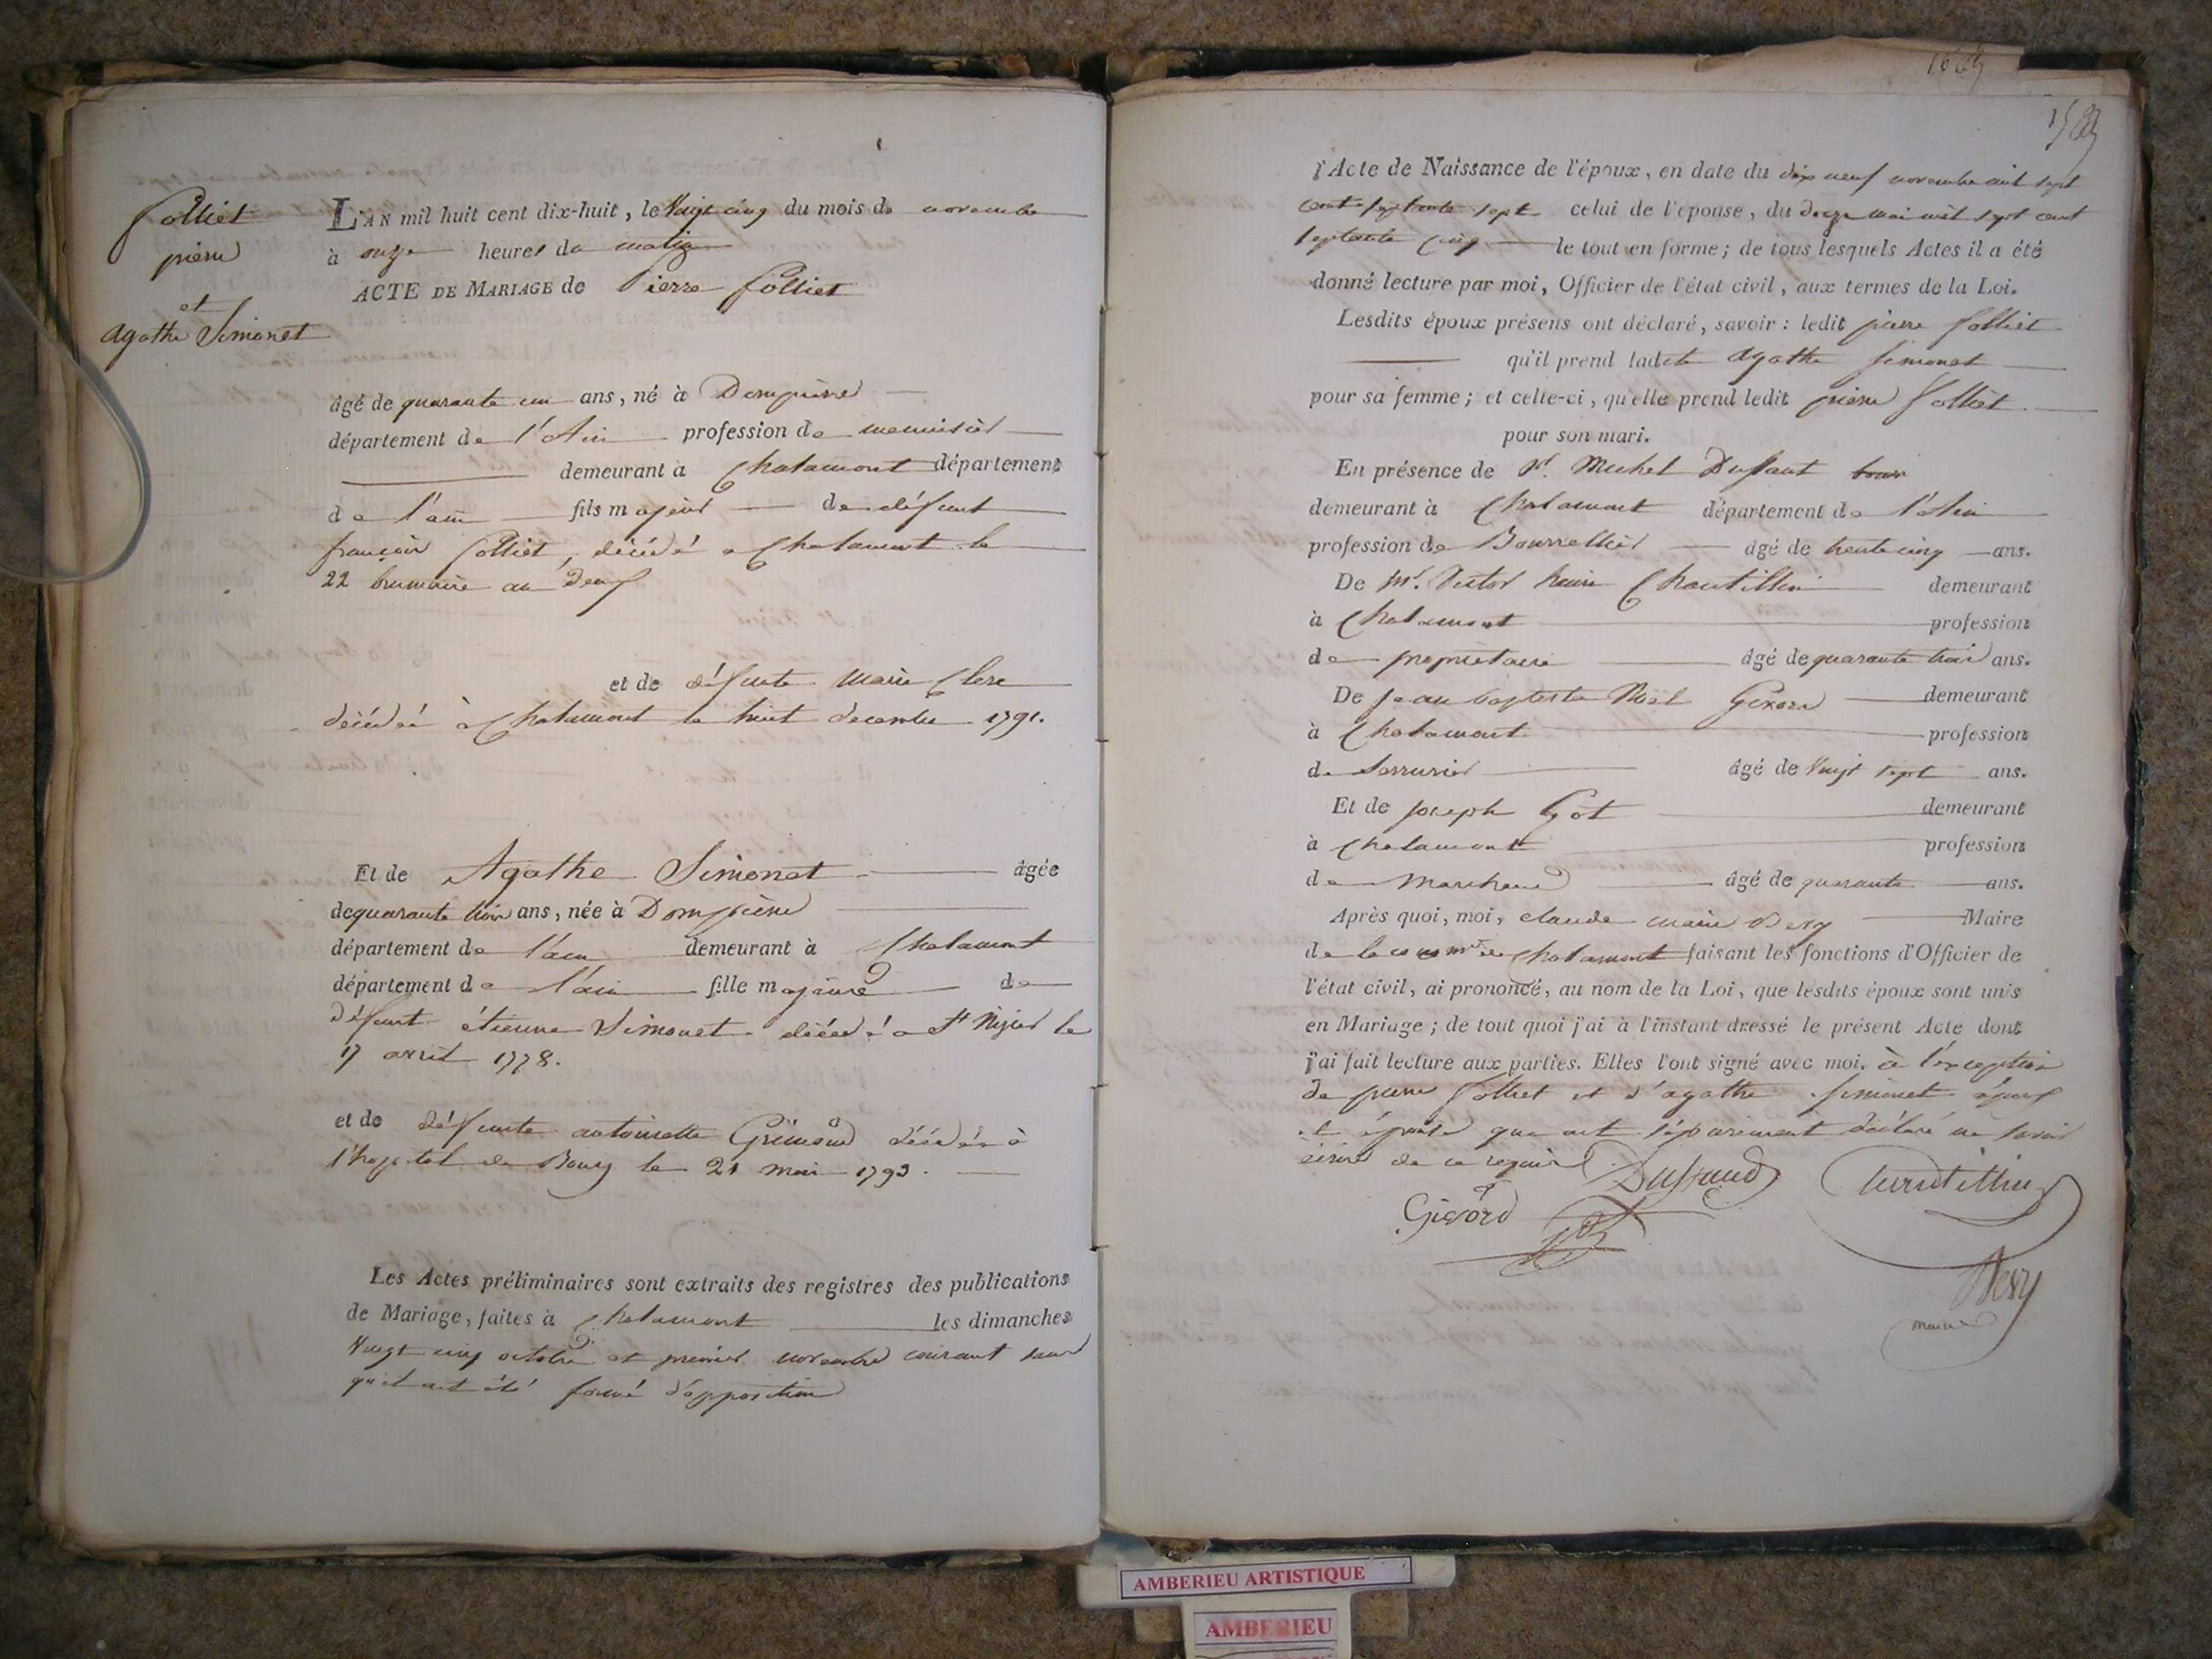 Folliet
pierre
et
agathe Simonet
L'AN mil huit cent dix-huit, le Vingt cinq du mois de novembre
à onze heures du matin
ACTE DE MARIAGE de Pierre Folliet
âgé de quarante un ans, né à Dompierre
département de l'Ain profession de menuisier
demeurant à Chalamont département
de l'ain fils majeur de défunt
françois Folliet, décédé a Chalamont le
22 brumaire an neuf
et de défunte marie Clerc
décédée à Chalamont le huit decembre 1791.
Et de Agathe Simonet âgée
de quarante trois ans, née à Dompierre
département de l'ain demeurant à Chalamont
département de l'ain fille majeure de
défunt étienne Simonet décédé a St Nizier le
17 avril 1778.
et de défunte antoinette Grimond décédée à
l'hopital de Bourg le 21 mai 1793.
Les Actes préliminaires sont extraits des registres des publications
de Mariage, faites à Chalamont les dimanches
Vingt cinq octobre et premier novembre courant sans
qu'il ait été formé d'opposition
l'Acte de Naissance de l'époux, en date du dix neuf novembre mil sept
cent septante sept celui de l'épouse, du douze mai mil sept cent
septante cinq le tout en forme; de tous lesquels Actes il a été
donné lecture par moi, Officier de l'état civil, aux termes de la Loi.
Lesdits époux présens ont déclaré, savoir: ledit pierre Folliet
qu'il prend ladite agathe Simonet
pour sa femme; et celle-ci, qu'elle prend ledit pierre Folliet
pour son mari.
En présence de Sr. Michel Dussaut
demeurant à Chalamont département de l'Ain
profession de Bourrellier âgé de trente cinq ans.
De Mr. Victor henri Chantillin demeurant
à Chalamont profession
de propriétaire âgé de quarante trois ans.
De Jean baptiste Noël Girord demeurant
à Chalamont profession
de Serrurier âgé de Vingt sept ans.
Et de joseph Got demeurant
à Chalamont profession
de Marchand âgé de quarante ans.
Après quoi, moi, claude marie Dery Maire
de la comme de Chalamont faisant les fonctions d'Officier de
l'état civil, ai prononcé, au nom de la Loi, que lesdits époux sont unis
en Mariage; de tout quoi j'ai à l'instant dressé le présent Acte dont
j'ai fait lecture aux parties. Elles l'ont signé avec moi. à l'exception
de pierre Folliet et d'agathe Simonet époux
et épouse qui ont séparément déclaré ne savoir
écrire de ce requis
Dussaud
Girord
maire
AMBERIEU ARTISTIQUE
AMBERIEU